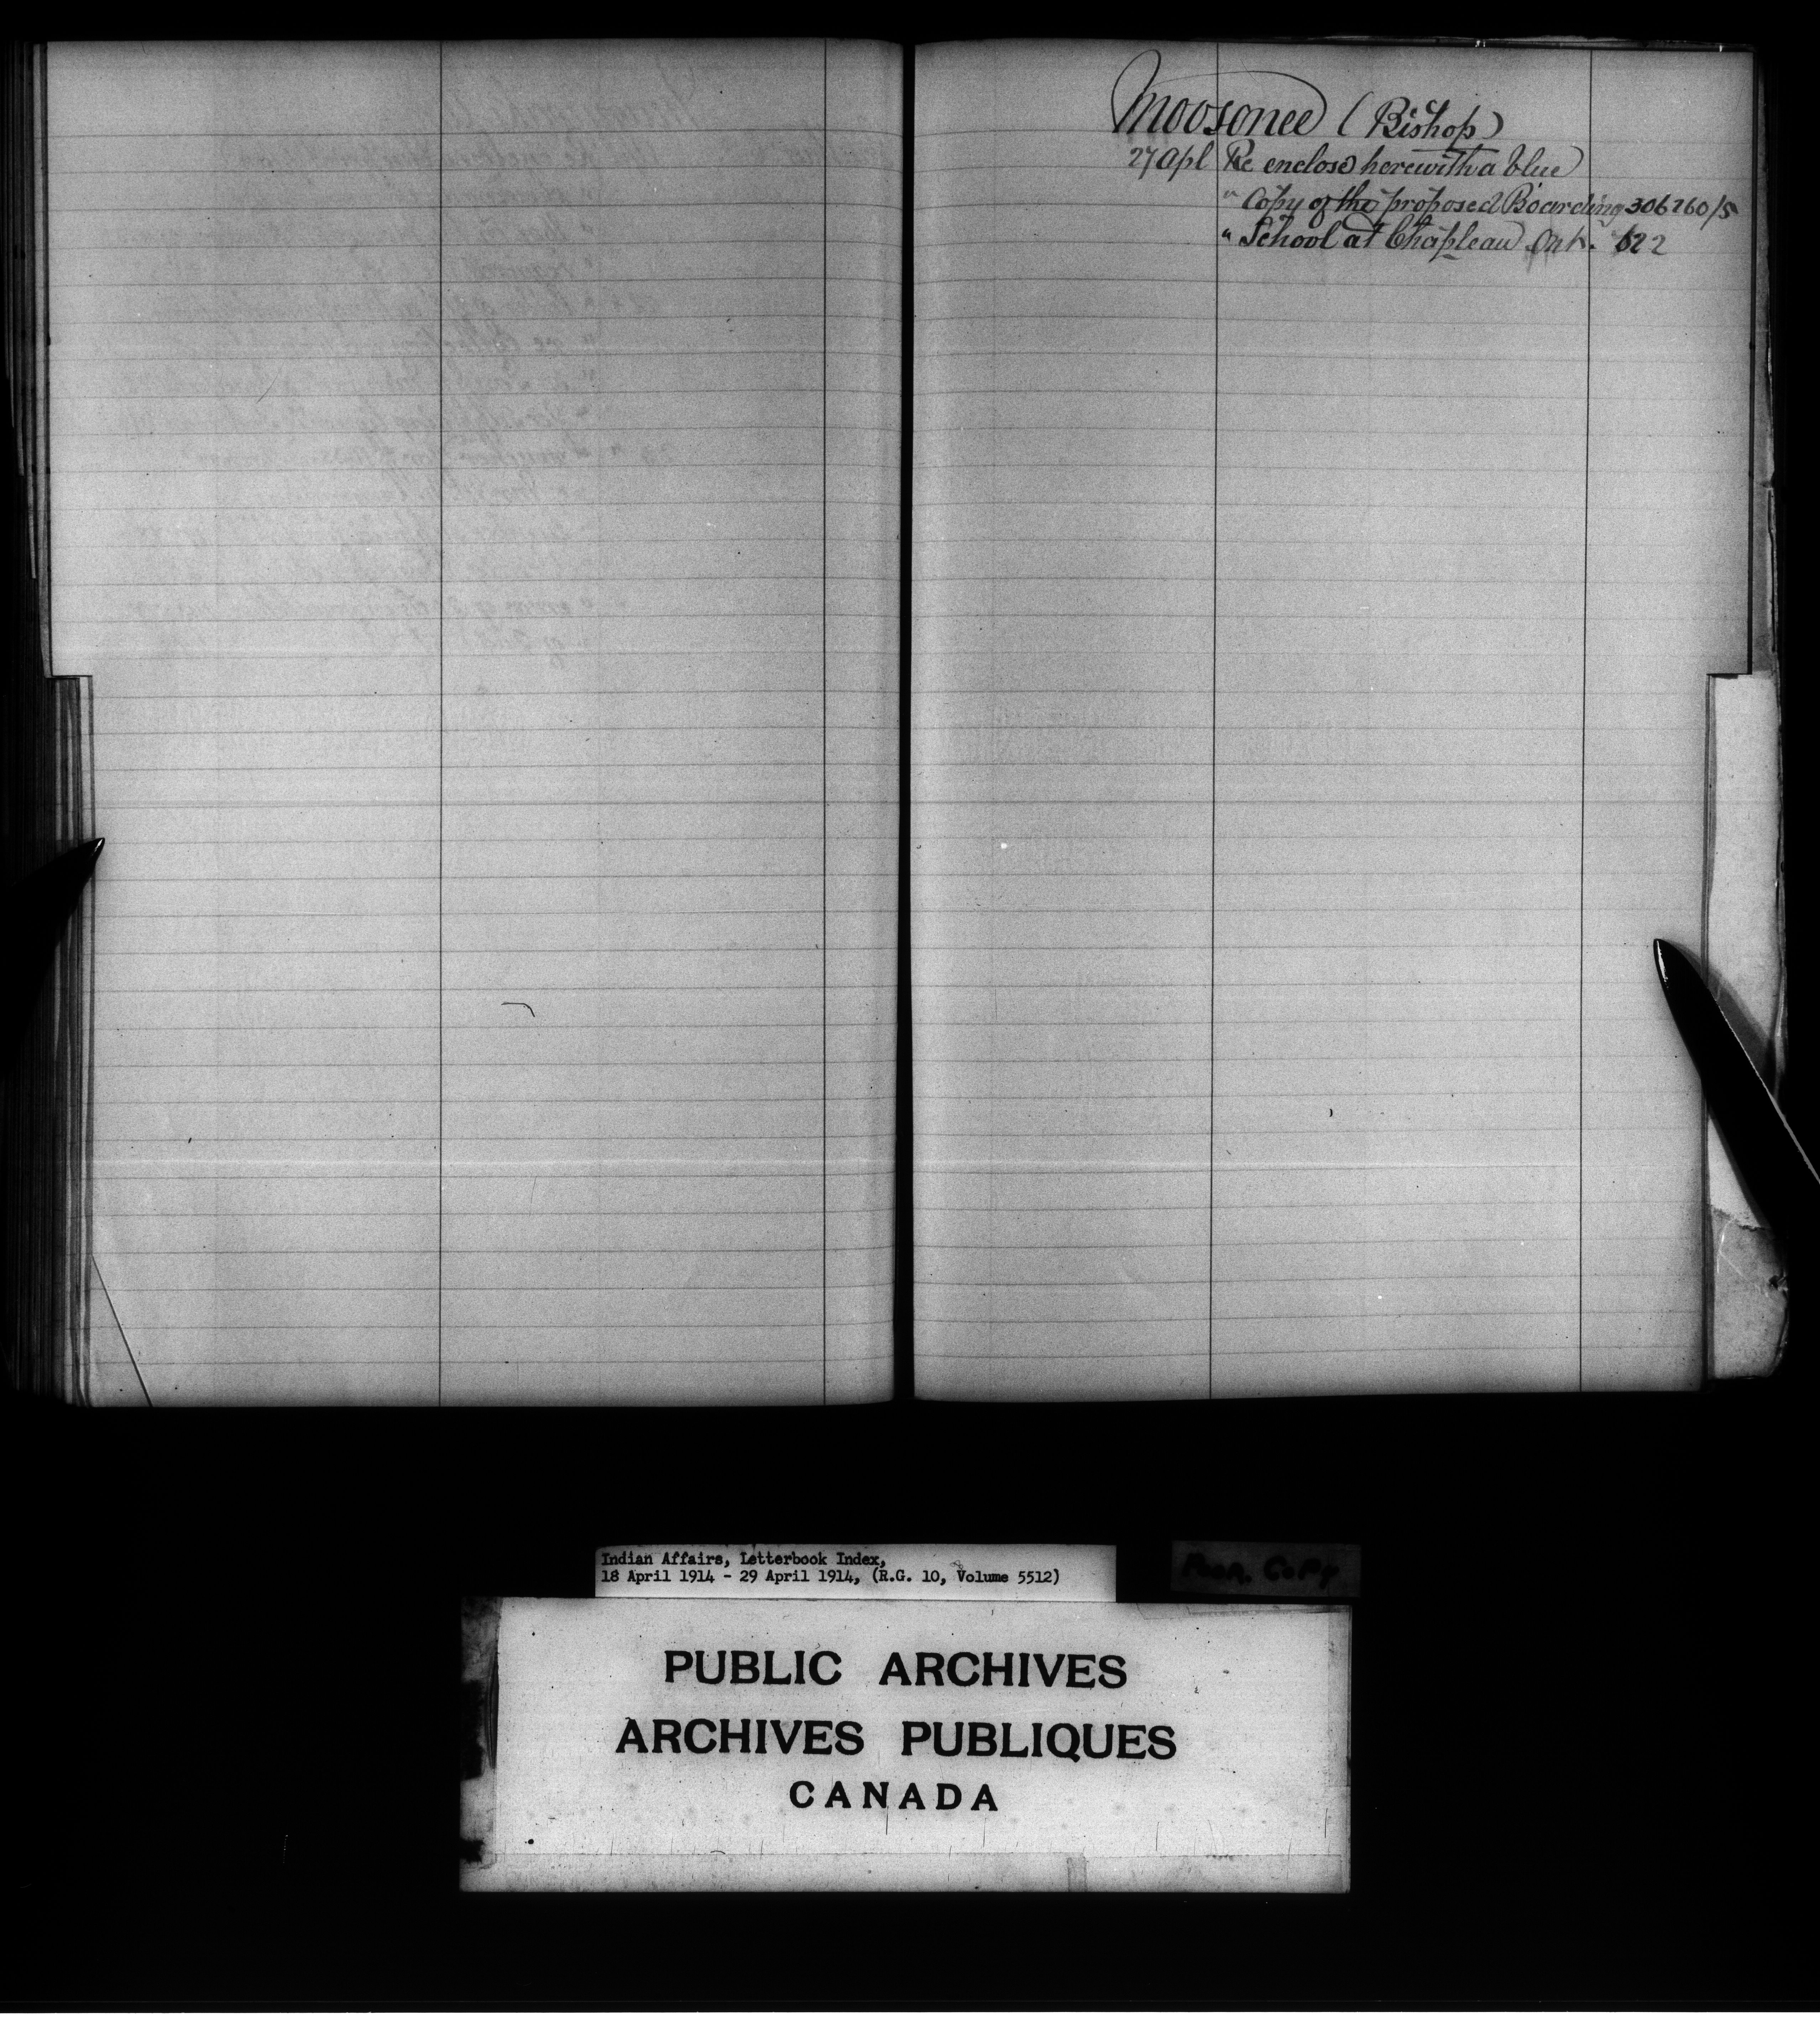 Moosonee (Bishop)
27 Apl Re enclose herewith a blue
" Copy of the proposed Boarding 306260/5
" School at Chapleau Ont. 622
Indian Affairs, Letterbook Index,
18 April 1914 - 29 April 1914, (R.G. 10, Volume 5512)
Poor Copy
PUBLIC ARCHIVES
ARCHIVES PUBLIQUES
CANADA